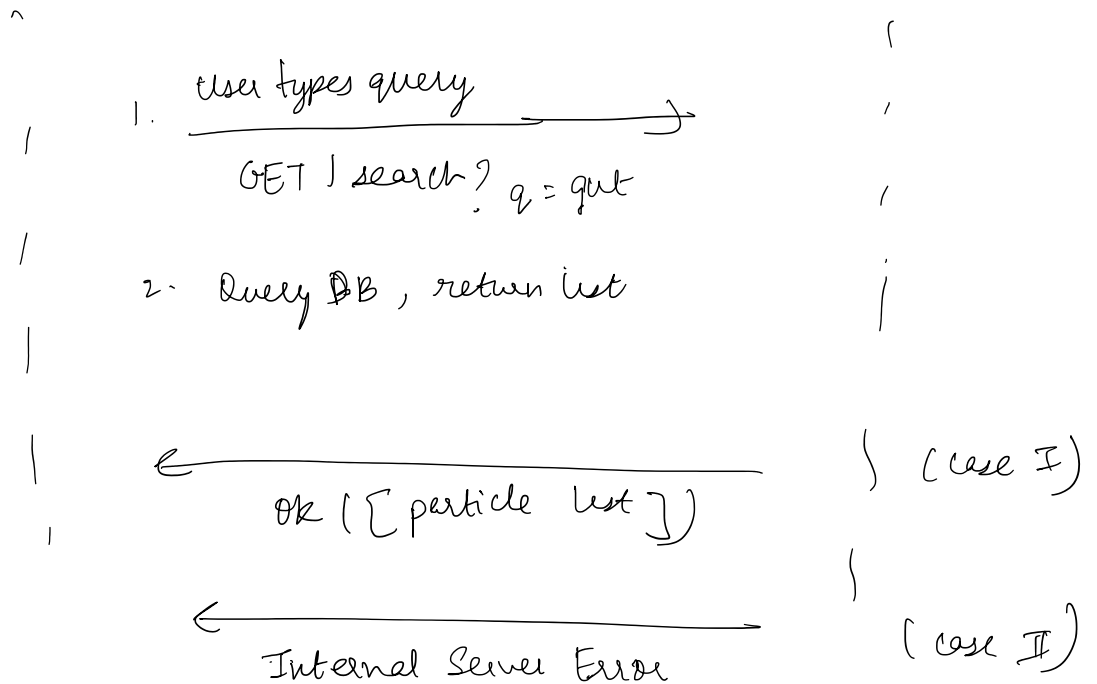 1. User types query
GET / search? q = gut
2. Query DB, return list
(case I)
OK ([particle list])
(case II)
Internal Server Error